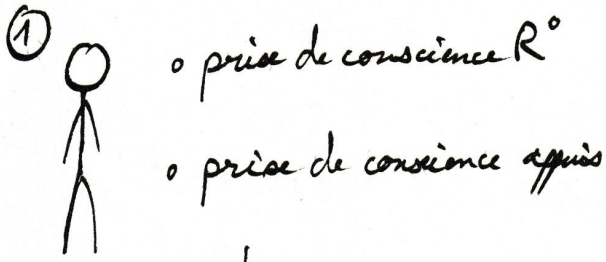 ①
° prise de conscience R°
° prise de conscience appuis